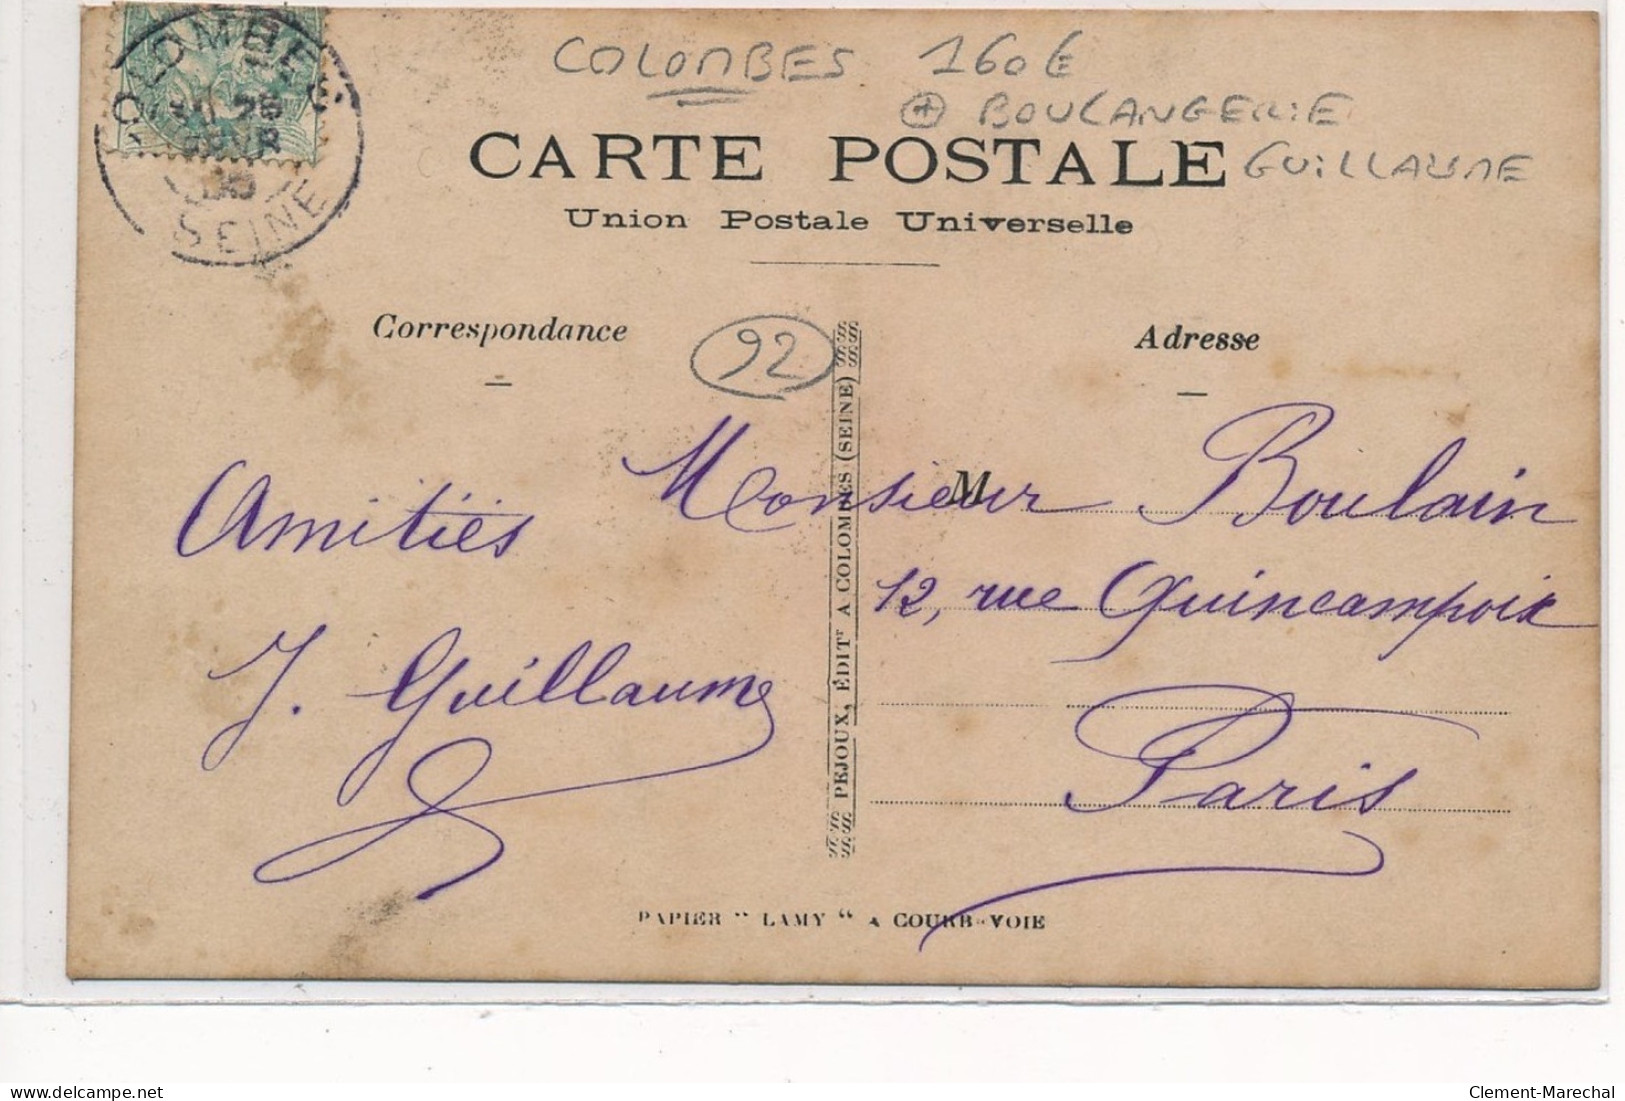 COLOMBES
SEINE
COLOMBES 160€
+ BOULANGERIE
GUILLAUME
CARTE POSTALE
Union Postale Universelle
Correspondance
92
Adresse
Amitiés
J. Guillaume
M
Monsieur Boulain
12, rue Quincampoix
Paris
PEJOUX, ÉDITr A COLOMBES (SEINE)
PAPIER " LAMY " A COURBEVOIE
delcampe.net
Clement-Marechal